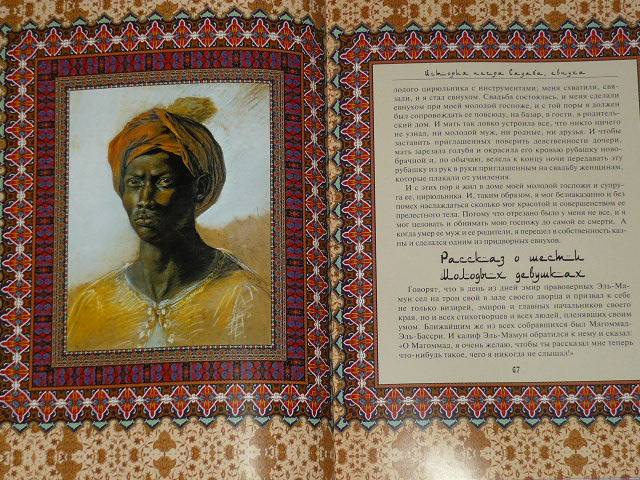 История негра Сауаба, евнуха
лодого цирюльника с инструментами; меня схватили, свя-
зали, и я стал евнухом. Свадьба состоялась, и меня сделали
евнухом при моей молодой госпоже, и с той поры я должен
был сопровождать ее повсюду, на базар, в гости, в родитель-
ский дом. И мать так ловко устроила все, что никто ничего
не узнал, ни молодой муж, ни родные, ни друзья. И чтобы
заставить приглашенных поверить девственности дочери,
мать зарезала голубя и окрасила его кровью рубашку ново-
брачной и, по обычаю, велела к концу ночи передавать эту
рубашку из рук в руки приглашенным на свадьбу женщинам,
которые плакали от умиления.
И с этих пор я жил в доме моей молодой госпожи и супру-
га ее, цирюльника. И, таким образом, я мог безнаказанно и без
помех наслаждаться сколько мог красотой и совершенством ее
прелестного тела. Потому что отрезано было у меня не все, и я
мог целовать и обнимать мою госпожу до самой ее смерти. А
когда умер ее муж и ее родители, я перешел в собственность каз-
ны и сделался одним из придворных евнухов.
Рассказ о шести
молодых девушках
Говорят, что в день из дней эмир правоверных Эль-Ма-
мун сел на трон свой в зале своего дворца и призвал к себе
не только визирей, эмиров и главных начальников своего
края, но и всех стихотворцев и всех людей, пленявших своим
умом. Ближайшим же из всех собравшихся был Магоммад-
Эль-Бассри. И калиф Эль-Мамун обратился к нему и сказал:
«О Магоммад, я очень желаю, чтобы ты рассказал мне теперь
что-нибудь такое, чего я никогда не слышал!»
67